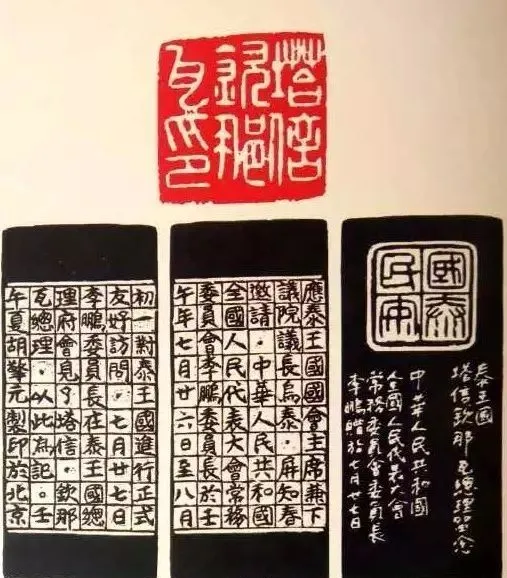 塔信
欽那
瓦印
國泰
民安
泰王國
塔信欽那瓦總理留念
中华人民共和國
全國人民代表大會
常務委員會委員長
李鵬贈於七月廿七日
應泰王國國會主席兼下
議院議長烏泰·屏知春
邀請·中華人民共和國
全國人民代表大會常務
委員會李鵬委員長於壬
午年七月廿六日至八月
初一對泰王國進行正式
友好訪問·七月廿七日
李鵬委員長在泰王國總
理府會見了塔信·欽那
瓦總理·以此為記·壬
午夏胡擎元製印於北京